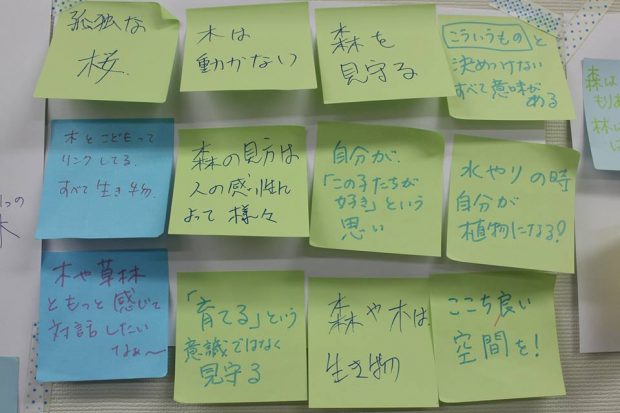 孤独な
桜
木は
動かない
森を
見守る
こういうものと
決めつけない
すべて意味が
ある
木とこどもって
リンクしてる。
すべて生き物。
森の見方は
人の感性に
よって様々
自分が、
「この子たちが
好き」という
思い
水やりの時
自分が
植物になる!
木や草林
ともっと感じて
対話したい
なぁ〜
「育てる」という
意識ではなく
見守る
森や木は
生き物
ここち良い
空間を!
つの
木
森は
もりあ
林は
は